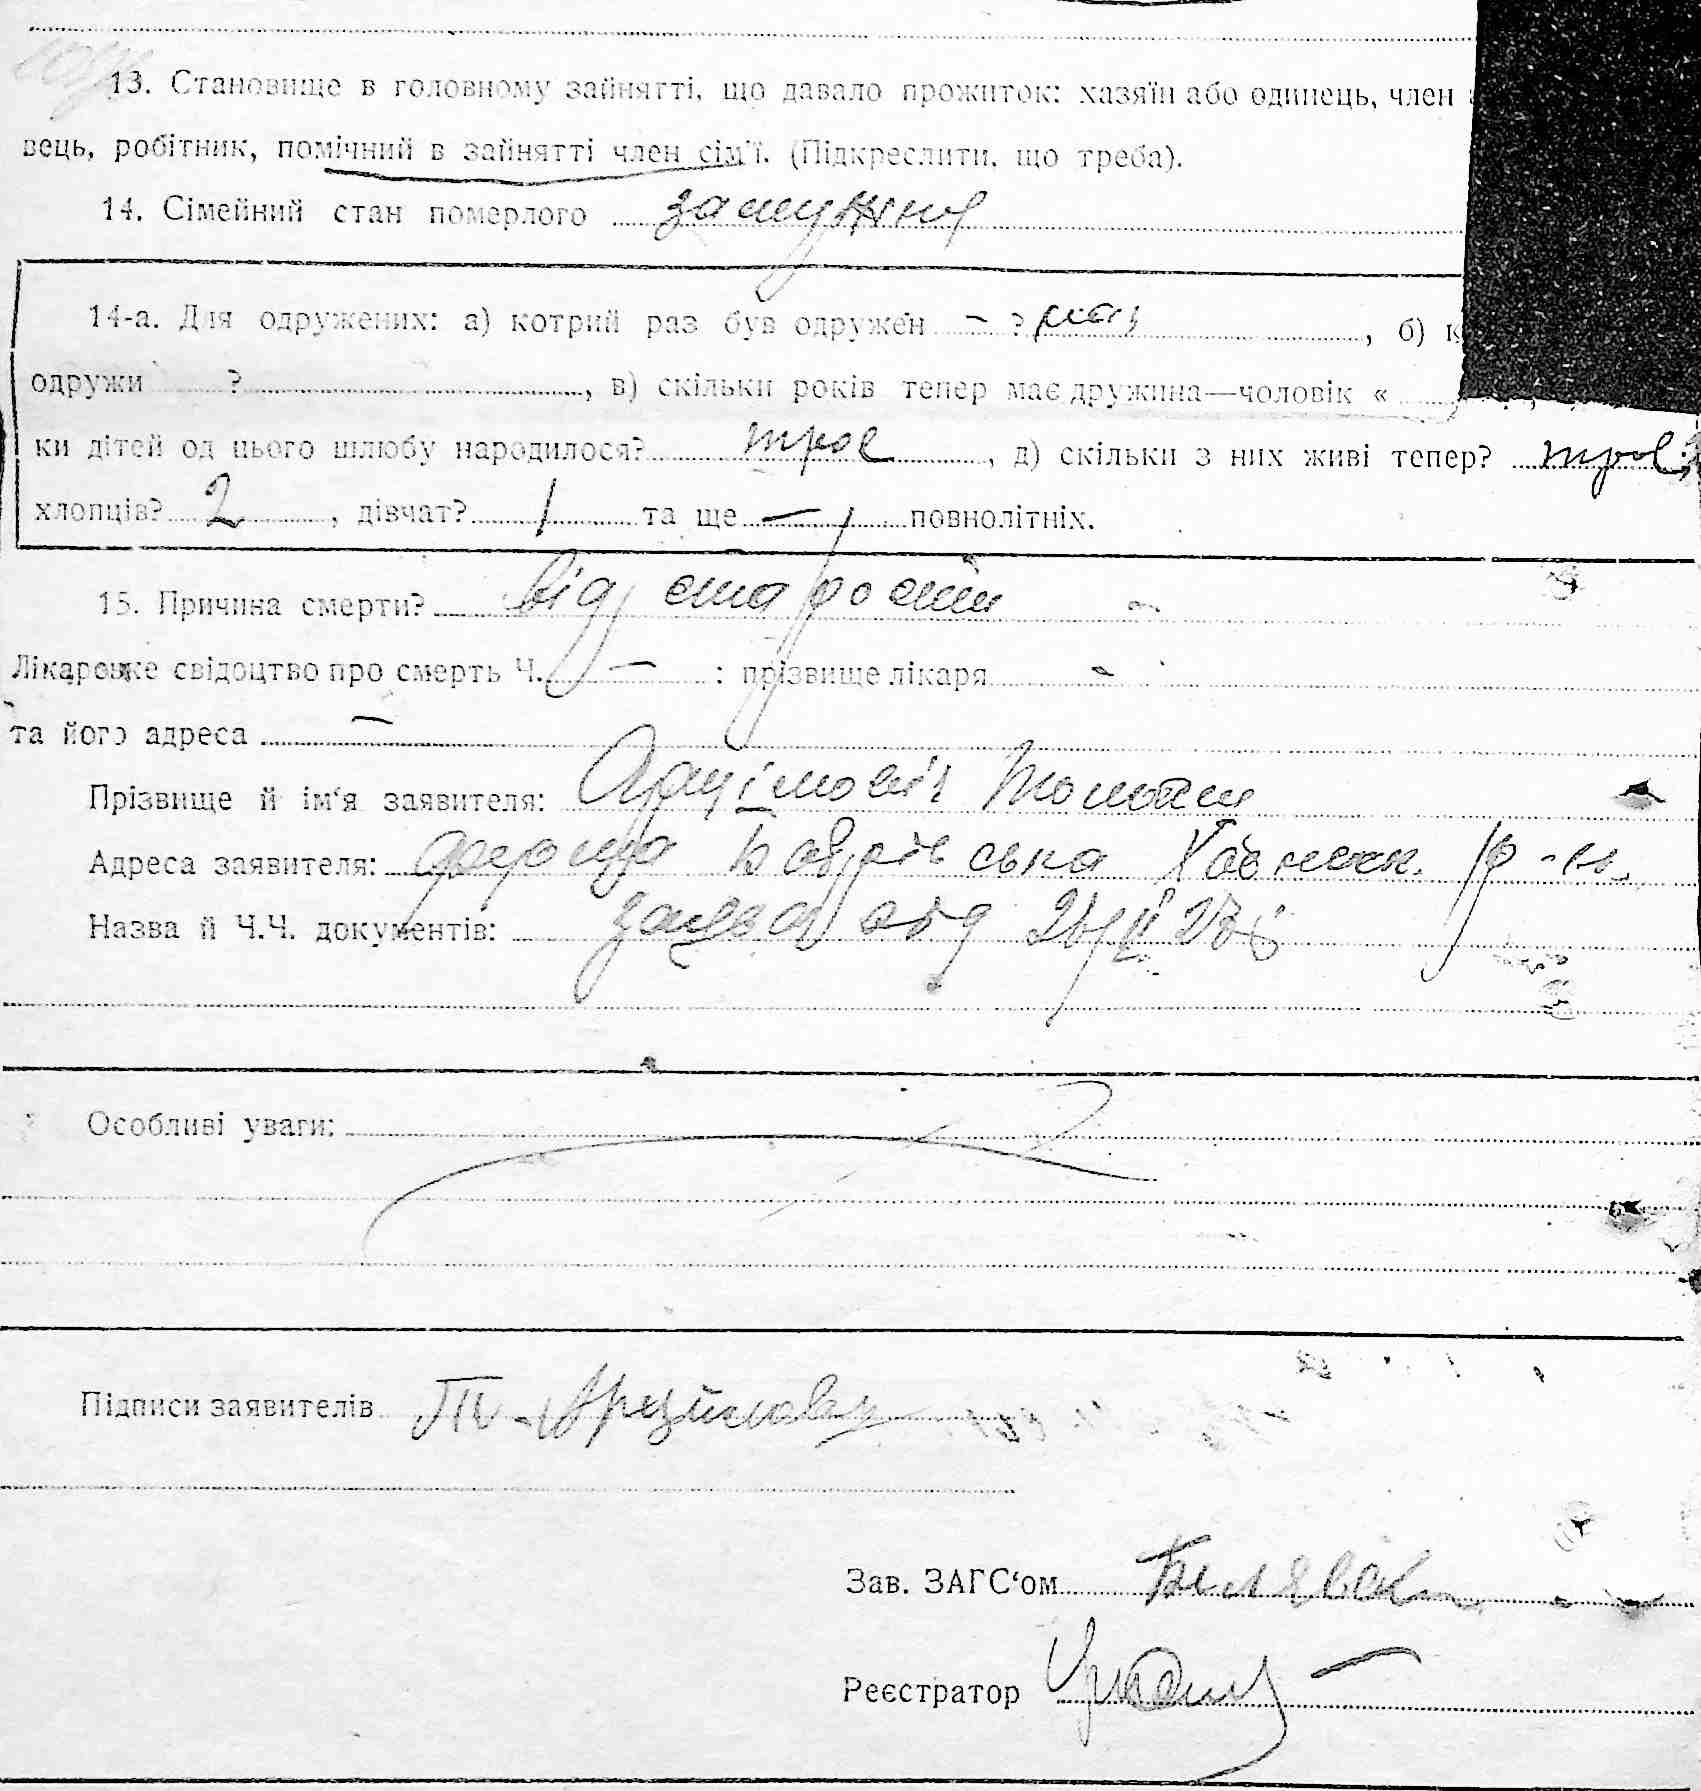 13. Становище в головному зайнятті, що давало прожиток: хазяїн або одинець, член
вець, робітник, помічний в зайнятті член сім'ї. (Підкреслити, що треба).
14. Сімейний стан померлого замужня
14-а. Для одружених: а) котрий раз був одружен — ? , б) к
одружи ? , в) скільки років тепер має дружина—чоловік «
ки дітей од цього шлюбу народилося? трое , д) скільки з них живі тепер? трое
хлопців? 2 , дівчат? 1 та ще — повнолітніх.
15. Причина смерти? від старости
Лікарське свідоцтво про смерть Ч. — : прізвище лікаря -
та його адреса —
Прізвище й ім'я заявителя:
Адреса заявителя: р-н.
Назва й Ч.Ч. документів: заява від
Особливі уваги:
Підписи заявителів
Зав. ЗАГС'ом
Реєстратор